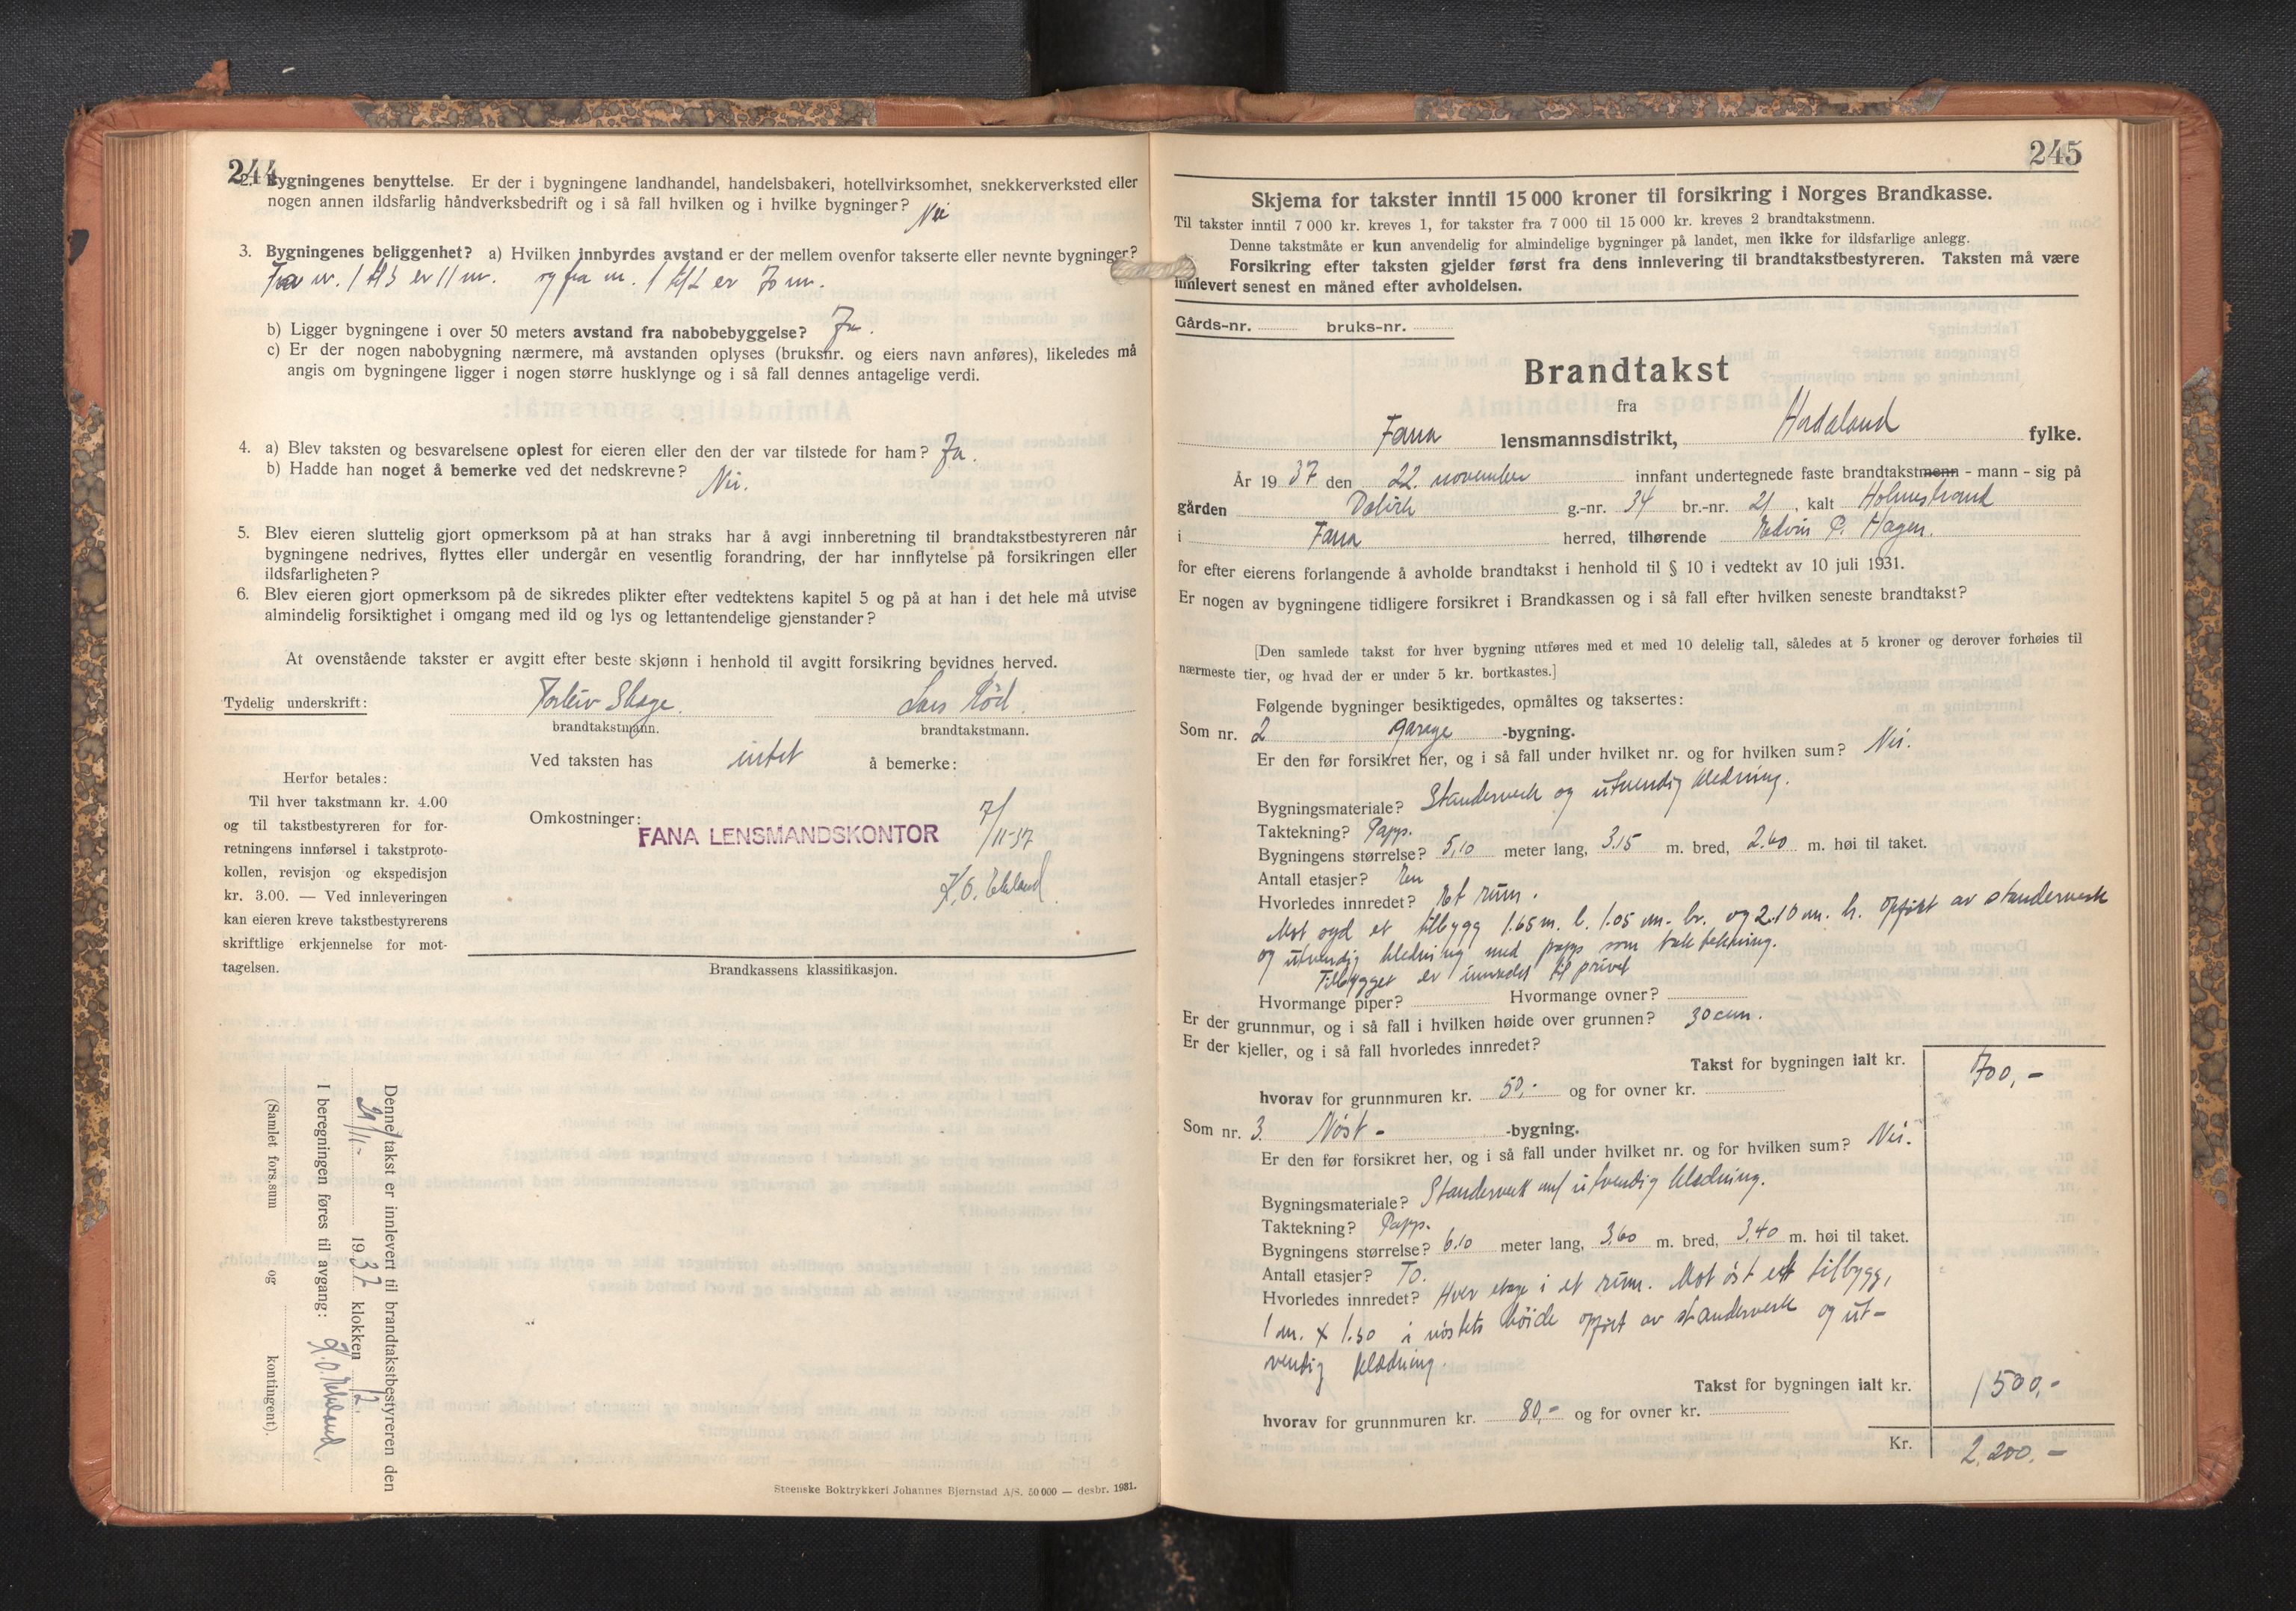 244
2. Bygningenes benyttelse. Er der i bygningene landhandel, handelsbakeri, hotellvirksomhet, snekkerverksted eller
nogen annen ildsfarlig håndverksbedrift og i så fall hvilken og i hvilke bygninger? Nei
3. Bygningenes beliggenhet? a) Hvilken innbyrdes avstand er der mellem ovenfor takserte eller nevnte bygninger?
Fra nr. 1 til 3 er 11 m. og fra nr. 1 til 2 er 70 m.
b) Ligger bygningene i over 50 meters avstand fra nabobebyggelse? Ja.
c) Er der nogen nabobygning nærmere, må avstanden oplyses (bruksnr. og eiers navn anføres), likeledes må
angis om bygningene ligger i nogen større husklynge og i så fall dennes antagelige verdi.
4. a) Blev taksten og besvarelsene oplest for eieren eller den der var tilstede for ham? Ja.
b) Hadde han noget å bemerke ved det nedskrevne? Nei.
5. Blev eieren sluttelig gjort opmerksom på at han straks har å avgi innberetning til brandtakstbestyreren når
bygningene nedrives, flyttes eller undergår en vesentlig forandring, der har innflytelse på forsikringen eller
ildsfarligheten?
6. Blev eieren gjort opmerksom på de sikredes plikter efter vedtektens kapitel 5 og på at han i det hele må utvise
almindelig forsiktighet i omgang med ild og lys og lettantendelige gjenstander?
At ovenstående takster er avgitt efter beste skjønn i henhold til avgitt forsikring bevidnes herved.
Tydelig underskrift: Torleiv Skage. Lars Rød.
brandtakstmann. brandtakstmann.
Ved taksten has intet å bemerke:
Herfor betales:
Til hver takstmann kr. 4.00
og til takstbestyreren for for-
retningens innførsel i takstproto-
kollen, revisjon og ekspedisjon
kr. 3.00. — Ved innleveringen
kan eieren kreve takstbestyrerens
skriftlige erkjennelse for mot-
tagelsen.
Omkostninger:
FANA LENSMANDSKONTOR
7/11-37
K. O.
Brandkassens klassifikasjon.
Denne takst er innlevert til brandtakstbestyreren den
24/11- 1937 klokken 12.
I beregningen føres til avgang: K. O.
(Samlet fors.sum og kontingent).
Steenske Boktrykkeri Johannes Bjørnstad A/S. 50 000 — desbr. 1931.
245
Skjema for takster inntil 15 000 kroner til forsikring i Norges Brandkasse.
Til takster inntil 7 000 kr. kreves 1, for takster fra 7 000 til 15 000 kr. kreves 2 brandtakstmenn.
Denne takstmåte er kun anvendelig for almindelige bygninger på landet, men ikke for ildsfarlige anlegg.
Forsikring efter taksten gjelder først fra dens innlevering til brandtakstbestyreren. Taksten må være
innlevert senest en måned efter avholdelsen.
Gårds-nr. bruks-nr.
Brandtakst
fra
Fana lensmannsdistrikt, Hordaland fylke.
År 1937 den 22. november innfant undertegnede faste brandtakstmenn - mann - sig på
gården g.-nr. 34 br.-nr. 21, kalt Holmestrand
i Fana herred, tilhørende Edvin P. Hagen.
for efter eierens forlangende å avholde brandtakst i henhold til § 10 i vedtekt av 10 juli 1931.
Er nogen av bygningene tidligere forsikret i Brandkassen og i så fall efter hvilken seneste brandtakst?
[Den samlede takst for hver bygning utføres med et med 10 delelig tall, således at 5 kroner og derover forhøies til
nærmeste tier, og hvad der er under 5 kr. bortkastes.]
Følgende bygninger besiktigedes, opmåltes og taksertes:
Som nr. 2 garage -bygning.
Er den før forsikret her, og i så fall under hvilket nr. og for hvilken sum? Nei.
Bygningsmateriale? Standerverk og utvendig kledning.
Taktekning? Papp.
Bygningens størrelse? 5,10 meter lang, 3.15 m. bred, 2.60 m. høi til taket.
Antall etasjer? En
Hvorledes innredet? Et rum.
Mot syd et tilbygg 1.65 m. l. 1.05 m. br. og 2.10 m. h. opført av standerverk
og utvendig kledning med papp som taktekning.
Tilbygget er innredet til privet
Hvormange piper? Hvormange ovner?
Er der grunnmur, og i så fall i hvilken høide over grunnen? 30 cm.
Er der kjeller, og i så fall hvorledes innredet?
Takst for bygningen ialt kr. 700,-
hvorav for grunnmuren kr. 50,- og for ovner kr.
Som nr. 3. Nøst - -bygning.
Er den før forsikret her, og i så fall under hvilket nr. og for hvilken sum? Nei.
Bygningsmateriale? Standerverk m/ utvendig kledning.
Taktekning? Papp.
Bygningens størrelse? 6.10 meter lang, 3,60 m. bred, 3,40 m. høi til taket.
Antall etasjer? To.
Hvorledes innredet? Hver etage i et rum. Mot øst et tilbygg,
1 m. x 1.50 i nøstets høide opført av standerverk og ut-
vendig kledning.
Takst for bygningen ialt kr. 1500,-
hvorav for grunnmuren kr. 80,- og for ovner kr.
Kr. 2.200.-